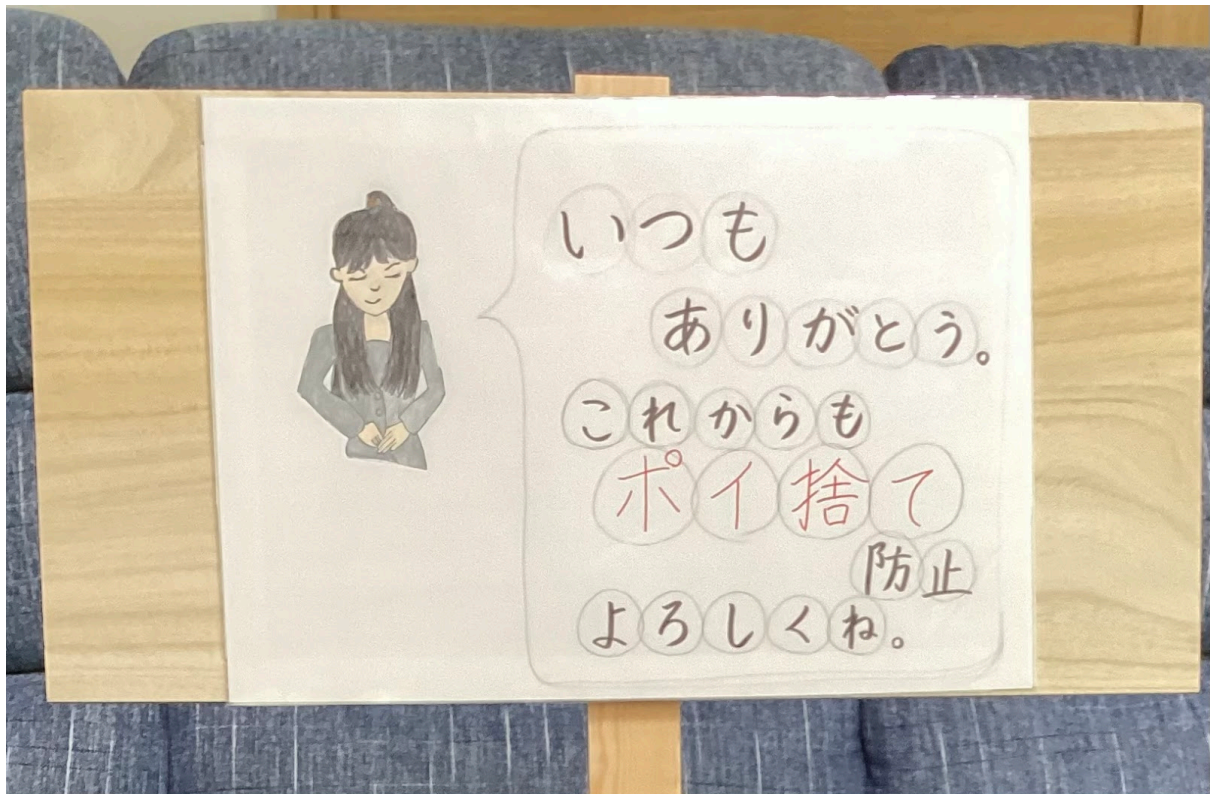 いつも
ありがとう。
これからも
ポイ捨て
防止
よろしくね。